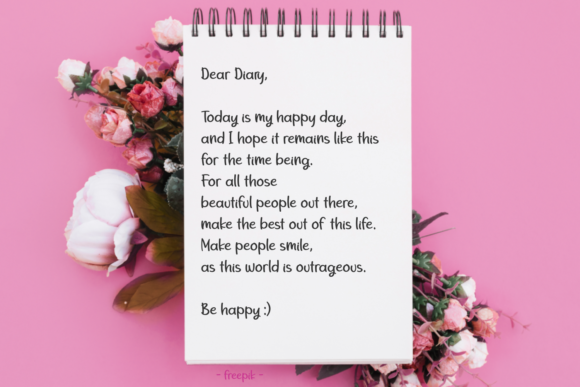 Dear Diary,
Today is my happy day,
and I hope it remains like this
for the time being.
For all those
beautiful people out there,
make the best out of this life.
Make people smile,
as this world is outrageous.
Be happy :)
~ freepik ~